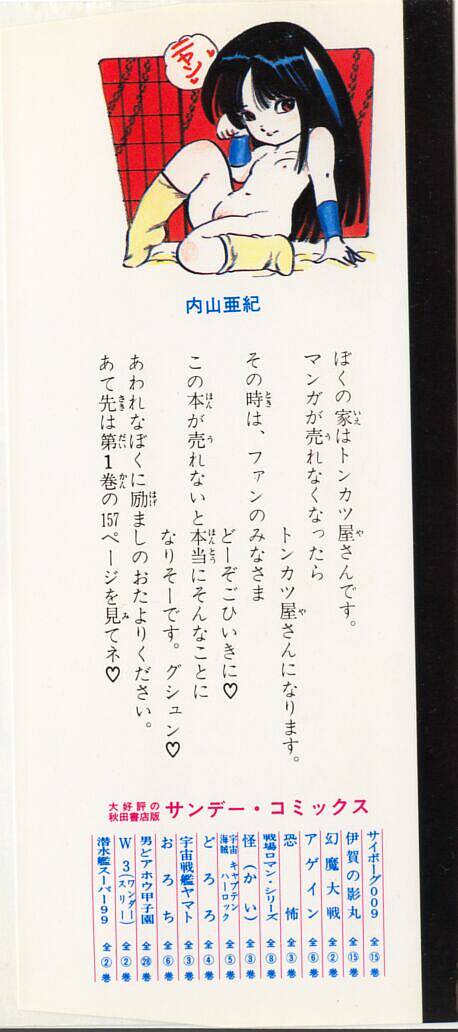 ニャン♥
内山亜紀
ぼくの家はトンカツ屋さんです。
マンガが売れなくなったら
トンカツ屋さんになります。
その時は、ファンのみなさま
どーぞごひいきに♡
この本が売れないと本当にそんなことに
なりそーです。グシュン♡
あわれなぼくに励ましのおたよりください。
あて先は第1巻の157ページを見てネ♡
大好評の
秋田書店版
サンデー・コミックス
サイボーグ009 全⑮巻
伊賀の影丸 全⑮巻
幻魔大戦 全②巻
アゲイン 全⑥巻
恐怖 全③巻
戦場ロマン・シリーズ 全⑧巻
怪(かい) 全③巻
宇宙海賊キャプテンハーロック 全⑤巻
どろろ 全④巻
宇宙戦艦ヤマト 全③巻
おろち 全⑥巻
男どアホウ甲子園 全㉘巻
W3(ワンダースリー) 全②巻
潜水艦スーパー99 全②巻